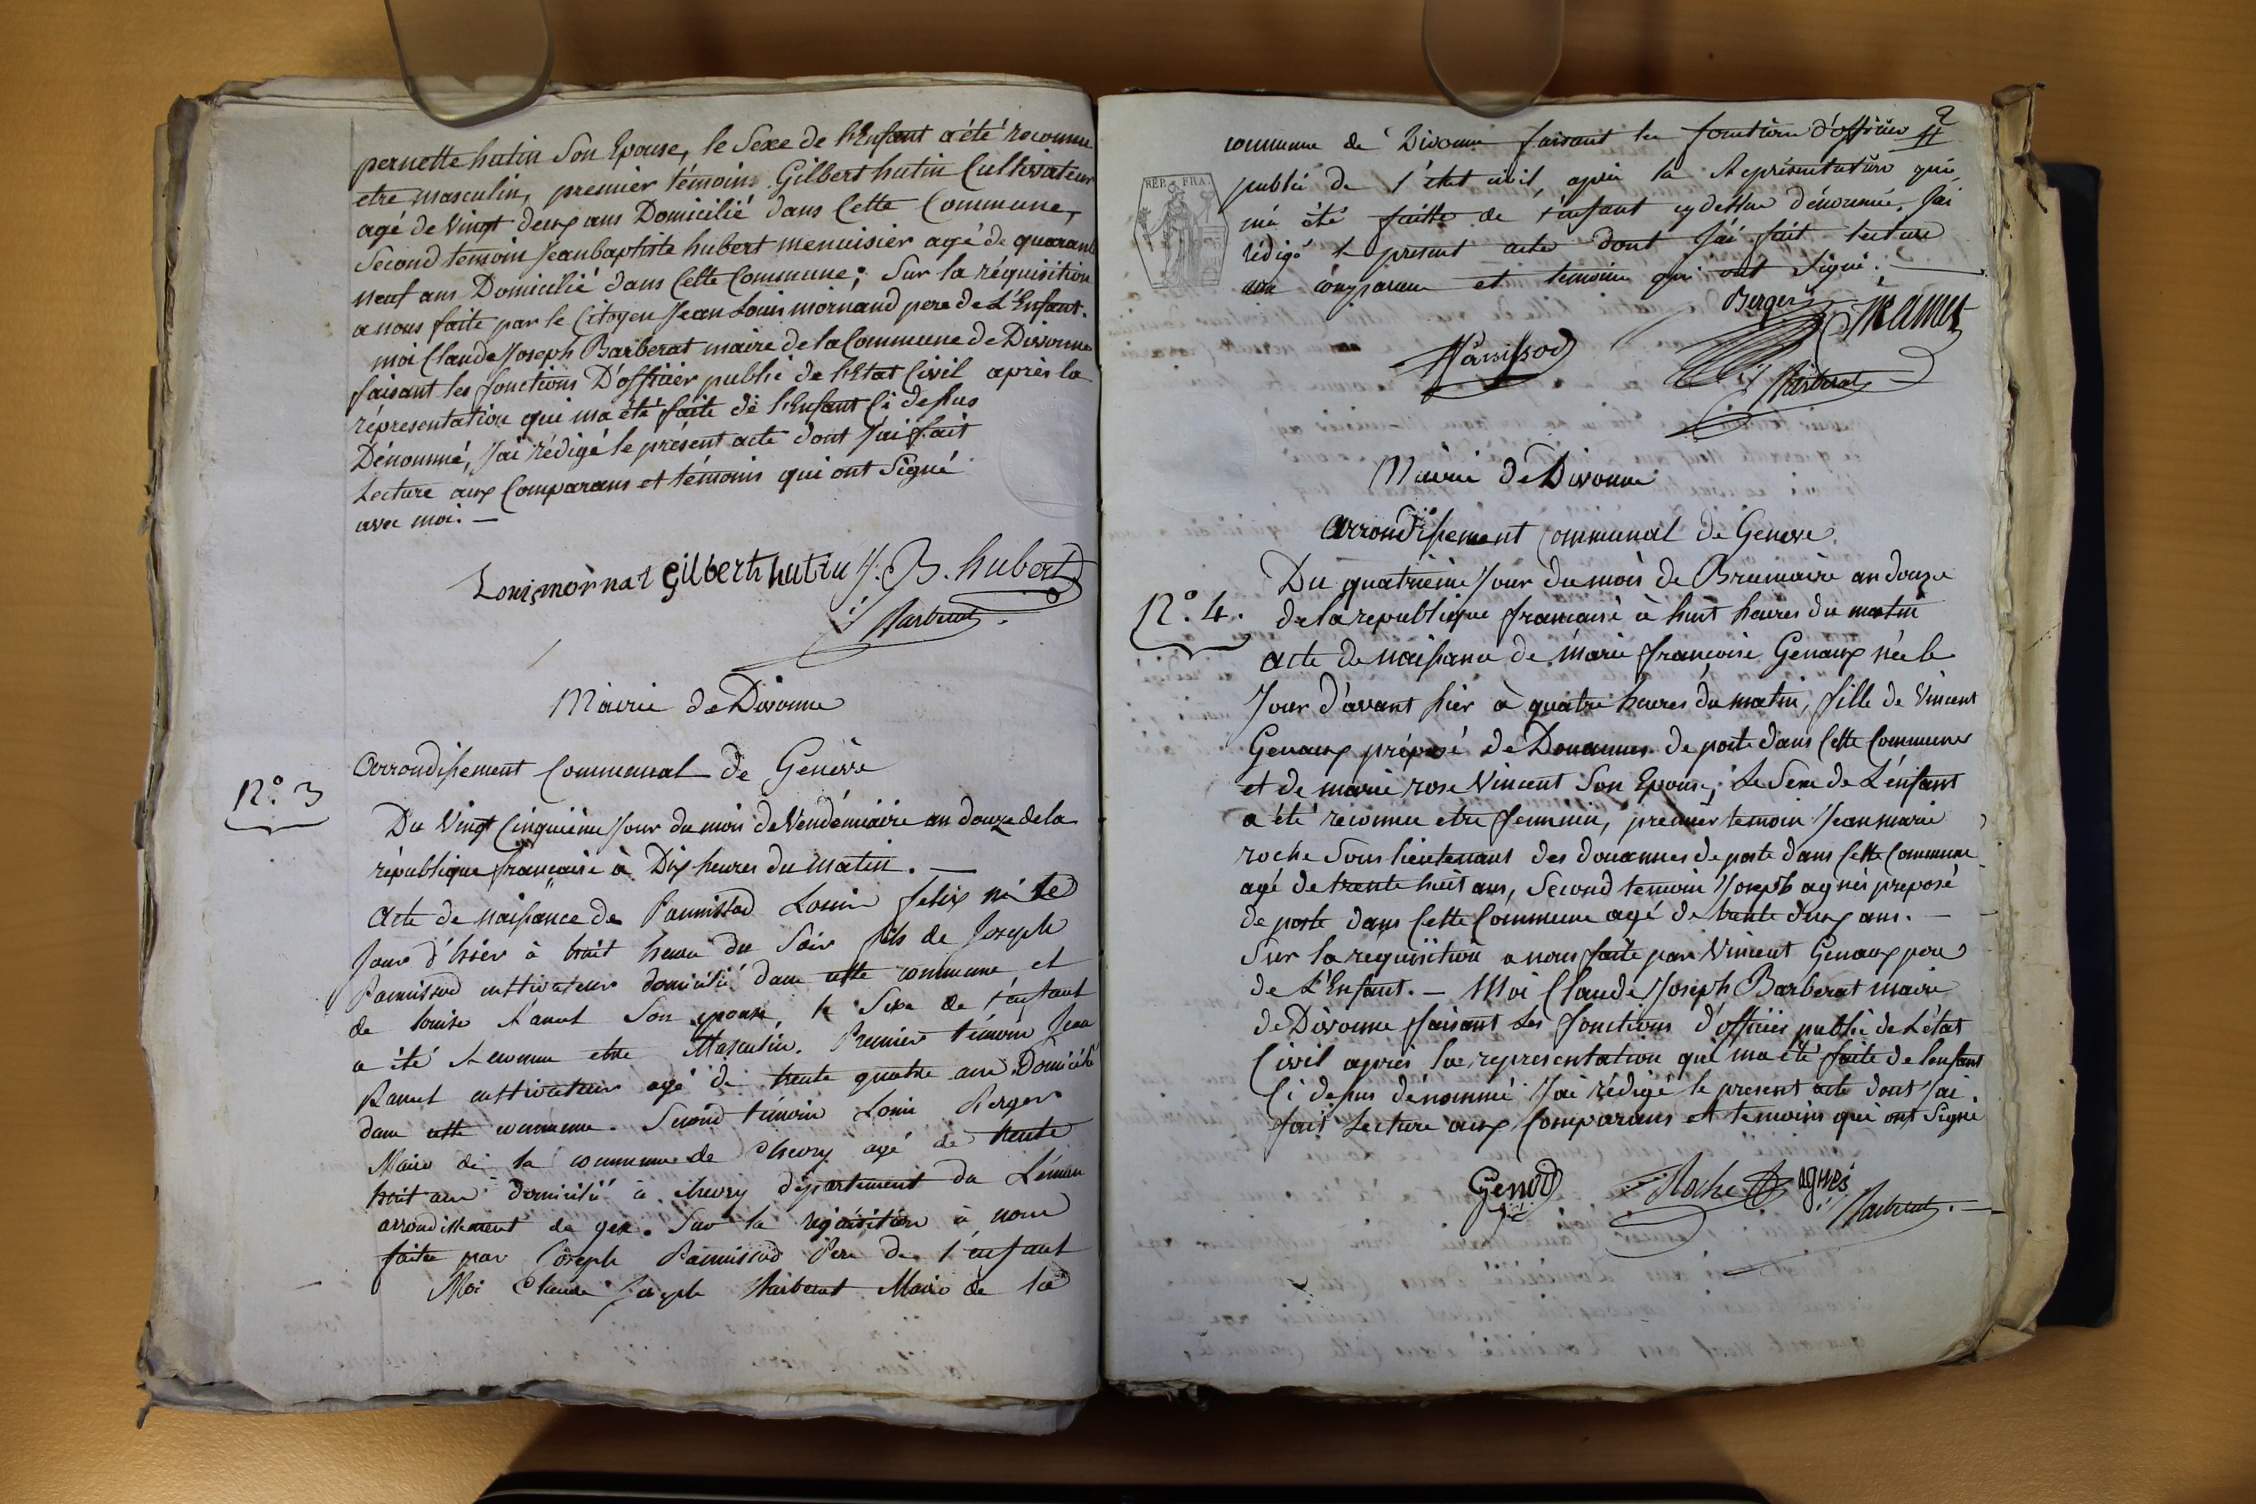 pernette hutin Son Epouse, le Sexe de l'Enfant a été reconnu
etre masculin, premier témoins Gilbert hutin Cultivateur
agé de Vingt deux ans Domicilié dans Cette Commune,
Second temoin Jeanbaptiste hubert menuisier agé de quarante
neuf ans Domicilié dans Cette Commune; Sur la réquisition
a nous faite par le Citoyen Jean Louis mornand pere de L'Enfant.
moi Claude Joseph Barberat maire de la Commune de Divonne
faisant les fonctions D'officier public de l'Etat Civil après la
réprésentation qui ma été faite de l'Enfant Ci dessus
Dénommé, J'ai rédigé le présent acte dont J'ai fait
Lecture aux Comparans et témoins qui ont Signé
avec moi. —
Louis mornat Gilbert hutin J. B. hubert
Barberat
Mairie de Divonne
Arrondissement Communal de Genève
N.° 3
Du Vingt Cinquième Jour du mois de Vendémiaire an douze de la
république française à Dix heures du matin. —
Acte de naissance de Panissod Louis felix né le
Jour d'hier à huit heures du Soir fils de Joseph
Panissod cultivateur domicilié dans cette commune et
de louise Ramel Son epouse, le Sexe de l'enfant
a été reconnu etre Masculin. Premier témoin Jean
Ramel cultivateur agé de trente quatre ans Domicilié
dans cette commune. Second témoin Louis Berger
Maire de la commune de Chevry agé de trente
huit ans domicilié à chevry département du Léman
arrondissement de gex. Sur la réquisition à nous
faite par Joseph Panissod Pere de l'enfant
Moi Claude Joseph Barberat Maire de la
2
commune de Divonne faisant les fonctions d'officier
REP. FRA.
public de l'état civil, après la Représentation qui
m'a été faitte de l'enfant cy dessus dénommé, J'ai
rédigé le present acte dont J'ai fait lecture
aux comparans et temoins qui ont Signé.
Berger Ramel
Panissod
Barberat
Mairie de Divonne
Arrondissement Communal de Geneve.
Du quatrieme Jour du mois de Brumaire an douze
N.° 4.
de la republique francaise à huit heures du matin
acte de naissance de marie françoise Genoux née le
Jour d'avant hier à quatre heures du matin, fille de Vincent
Genoux préposé de Douannes de poste dans Cette Commune
et de marie rose Vincent Son Epouse; Le Sexe de L'enfant
a été reconnu etre feminin, premier temoin Jean marie
roche Sous lieutenant des douannes de poste dans Cette Commune
agé de trente huit ans, Second temoin Joseph agnès preposé
de poste dans Cette Commune agé de trente deux ans. —
Sur la requisition a nous faite par Vincent Genoux pere
de L'Enfant. — Moi Claude Joseph Barberat maire
de Divonne faisant Les fonctions d'officier public de L'état
Civil après la representation qui ma été faite de lenfant
Ci dessus dénommé J'ai rédigé le present acte dont J'ai
fait Lecture aux Comparans et temoins qui ont Signé
Roche agnés
Barberat. —